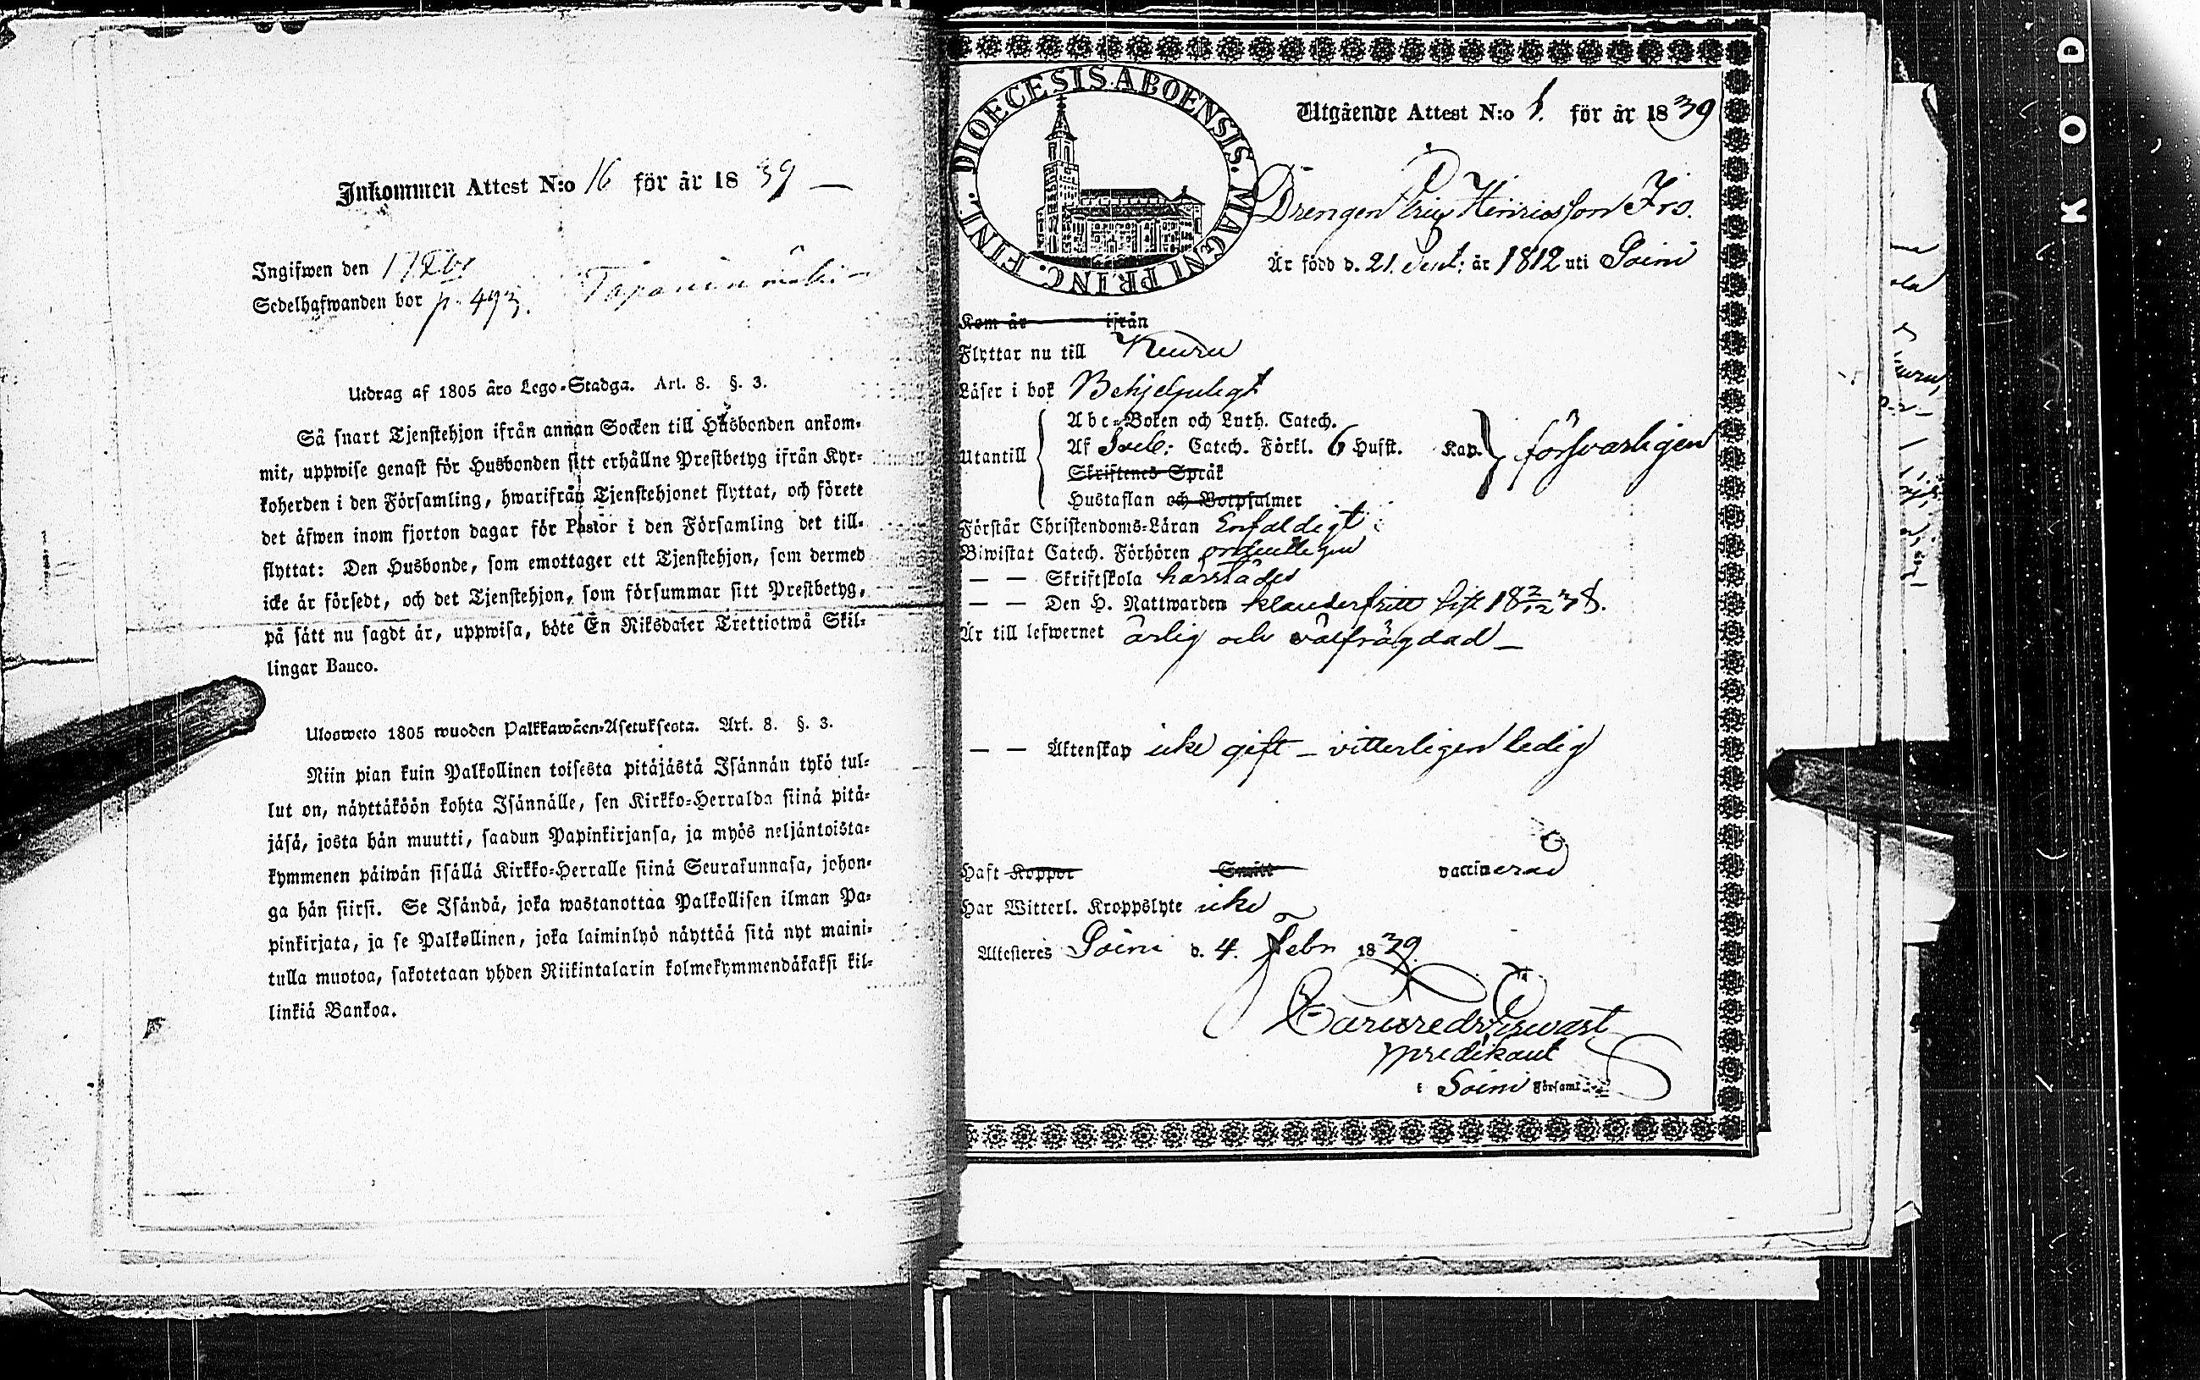 Inkommen Attest N:o 16 för år 18 39 —
Ingifwen den 17
Sedelhafwanden bor p. 493. Tapaninmäki
Utdrag af 1805 års Lego-Stadga. Art. 8. §. 3.
Så snart Tjenstehjon ifrån annan Socken till Husbonden ankom-
mit, uppwise genast för Husbonden sitt erhållne Prestbetyg ifrån Kyr-
koherden i den Församling, hwarifrån Tjenstehjonet flyttat, och förete
det äfwen inom fjorton dagar för Pastor i den Församling det till-
flyttat: Den Husbonde, som emottager ett Tjenstehjon, som dermed
icke är försedt, och det Tjenstehjon, som försummar sitt Prestbetyg,
på sätt nu sagdt är, uppwisa, böte En Riksdaler Trettiotwå Skil-
lingar Banco.
Ulosweto 1805 wuoden Palkkawäen-Asetuksesta. Art. 8. §. 3.
Niin pian kuin Palkollinen toisesta pitäjästä Isännän tykö tul-
lut on, näyttäköön kohta Isännälle, sen Kirkko-Herralda siinä pitä-
jäsä, josta hän muutti, saadun Papinkirjansa, ja myös neljäntoista-
kymmenen päiwän sisällä Kirkko-Herralle siinä Seurakunnasa, johon-
ga hän siirsi. Se Isändä, joka wastanottaa Palkollisen ilman Pa-
pinkirjata, ja se Palkollinen, joka laiminlyö näyttää sitä nyt maini-
tulla muotoa, sakotetaan yhden Riikintalarin kolmekymmendäkaksi kil-
linkiä Bankoa.
DIOECESIS ABOENSIS. MAGNI PRINC. FINL.
Utgående Attest N:o 1. för år 1839
Drengen Eric Hinricsson Iro.
Är född d. 21. Sept: år 1812 uti Soini
Kom år ifrån
Flyttar nu till Keuru
Läser i bok Behjelpeligt
Abc-Boken och Luth. Catech.
Utantill Af Sveb: Catech. Förkl. 6 Hufst. Kap. försvarligen
Skriftenes Språk
Hustaflan och Botpsalmer
Förstår Christendoms-Läran Enfaldigt
Biwistat Catech. Förhören ordentligen
— — Skriftskola härstädes
— — Den H. Nattwarden klanderfritt sist 18 2/12 38.
Är till lefwernet ärlig och välfrägdad —
— — Äktenskap icke gift – vitterligen ledig
Haft Koppor Smitt vaccinerad
Har Witterl. Kroppslyte icke
Attesteres Soini d. 4. Febr 1839.
predikant
i Soini Församl
KOD